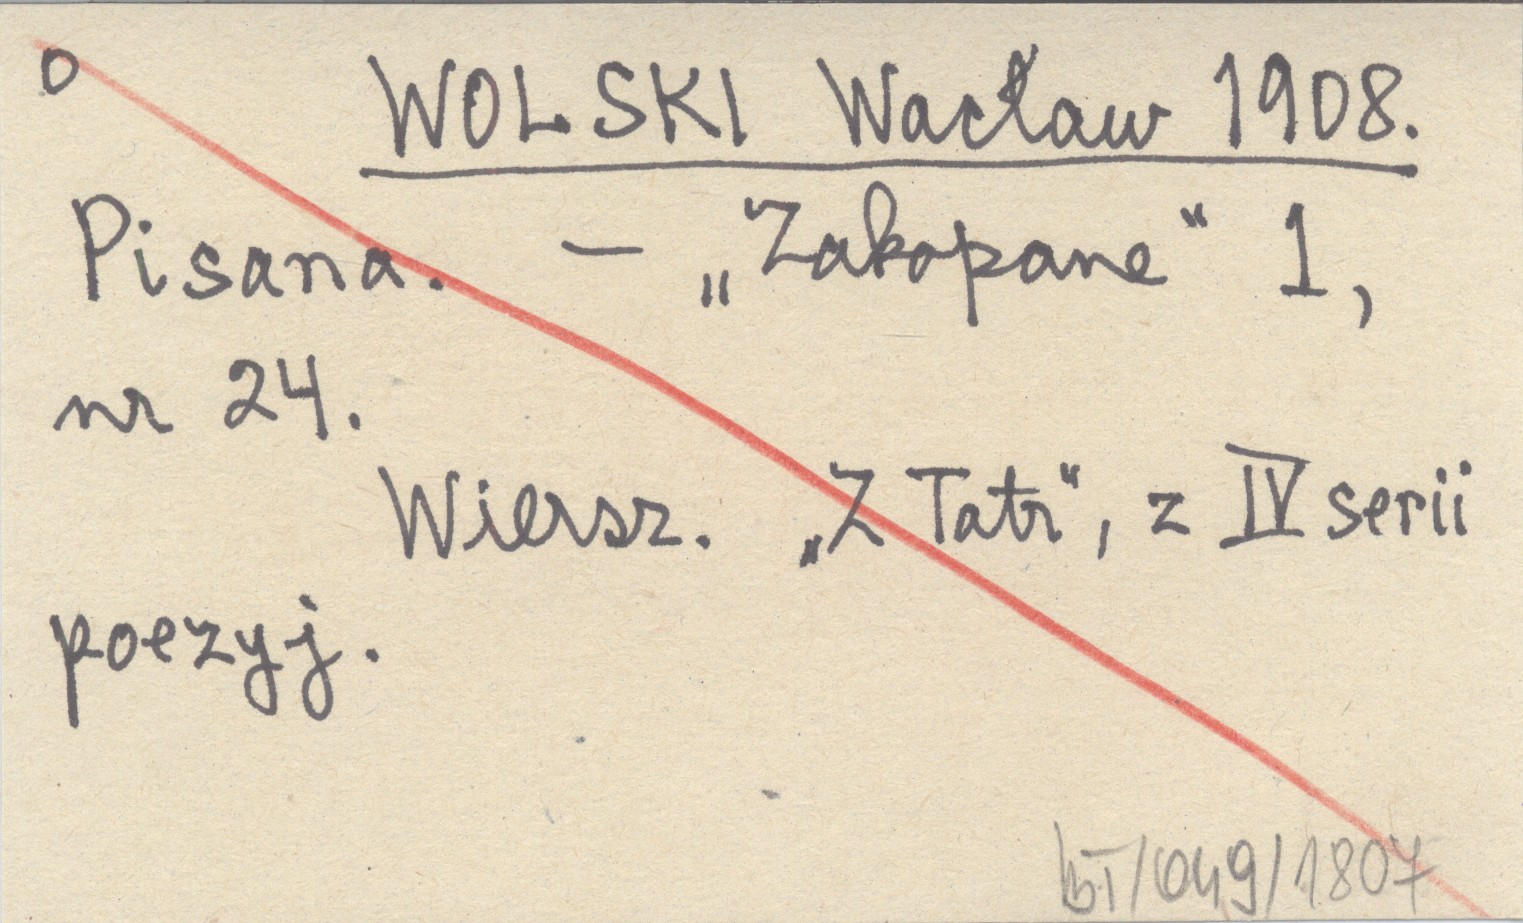 o
WOLSKI Wacław 1908.
Pisana. – „Zakopane“ 1,
nr 24.
Wiersz. „Z Tatr“, z IV serii
poezyj.
bT/049/1807